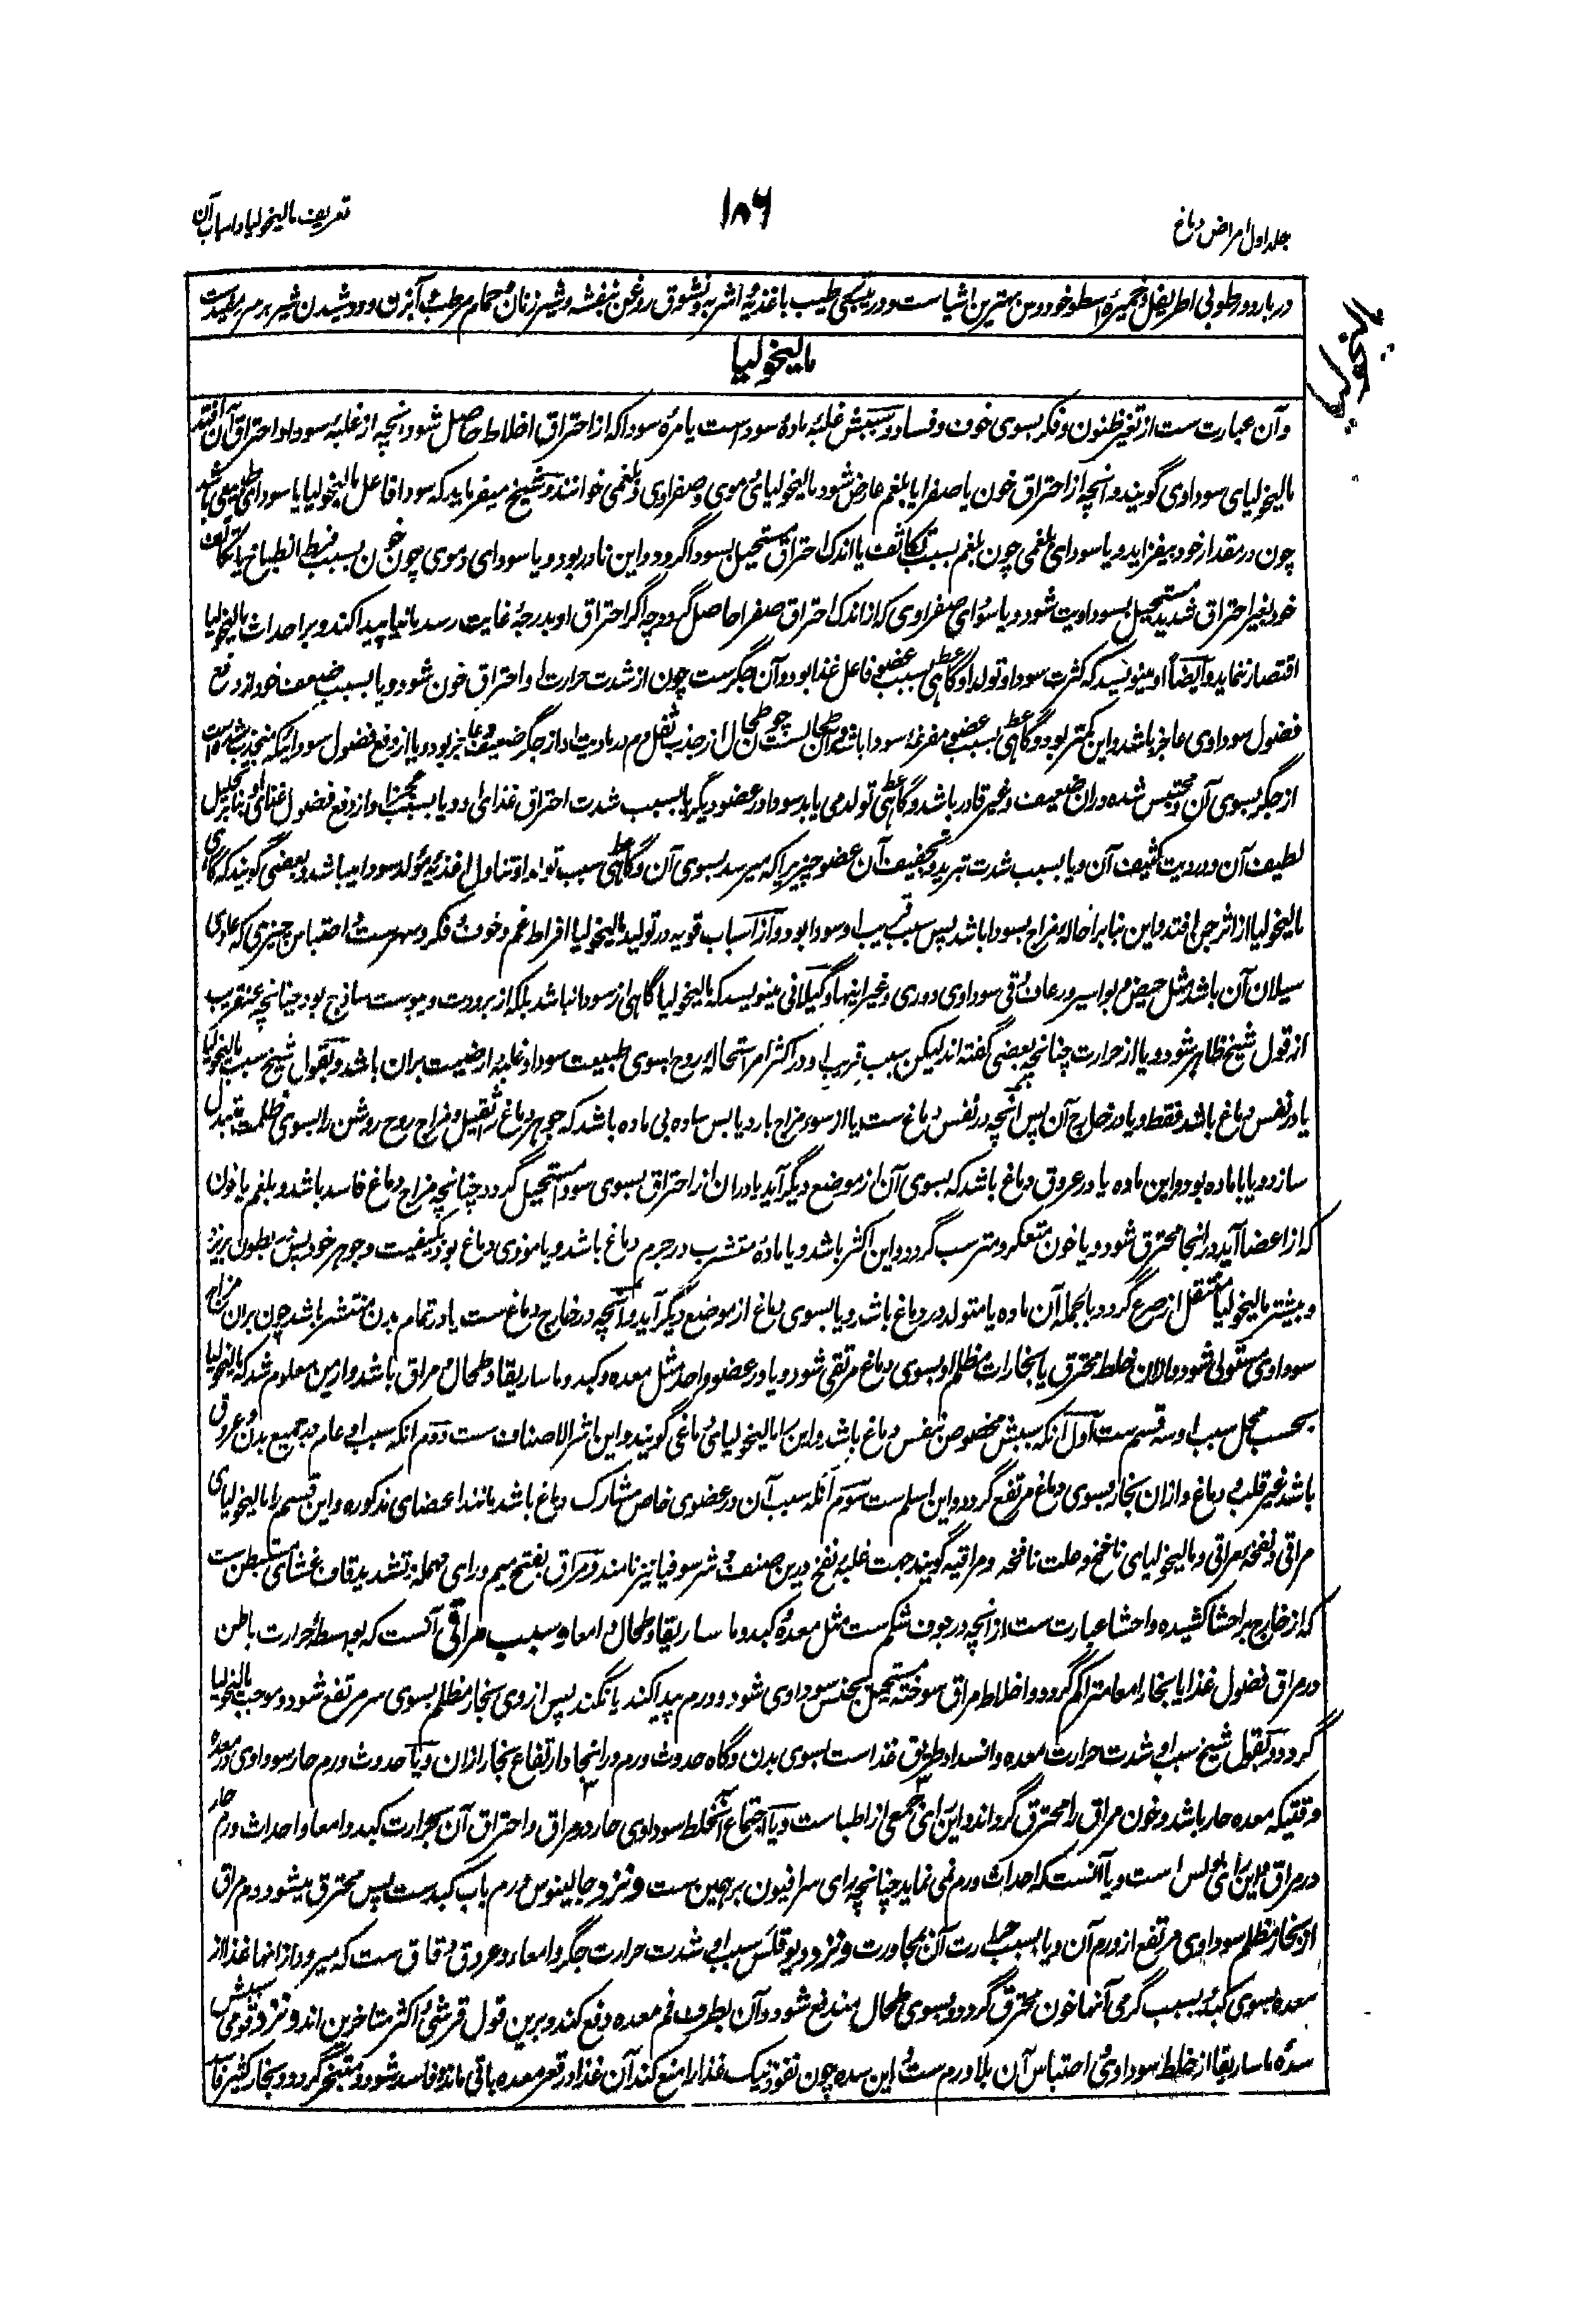 جلد اول امراض دماغ
۱۸۶
تعریف مالیخولیا و اسباب آن
در بارد و رطوبی اطریفل و خمیره اسطوخودوس بهترین اشیاست و در یبسی ترطیب باغذیه و اشربه و نشوق روغن بنفشه و شیر زنان و حمام مرطب و آبزن و دوشیدن شیر بر سر مفیدست
مالیخولیا
مالیخولیا
و آن عبارت ست از تغیر ظنون و فکر بسوی خوف و فساد و سببش غلبهٔ مادهٔ سوداست یا مرهٔ سودا که از احتراق اخلاط حاصل شود و آنچه از غلبهٔ سودا و احتراق آن افتد
مالیخولیای سوداوی گویند و آنچه از احتراق خون یا صفرا یا بلغم عارض شود مالیخولیای دموی و صفراوی و بلغمی خوانند و شیخ میفرماید که سودا فاعل مالیخولیا یا سودای طبیعی باشد
چون در مقدار خود بیفزاید و یا سودای بلغمی چون بلغم بسبب تکاثف یا اندک احتراق مستحیل بسودا گردد و این نادر بود و یا سودای دموی چون خون بسبب فرط انطباخ یا تکاثف
خود بغیر احتراق شدید مستحیل بسوداویت شود و یا سودای صفراوی که از اندک احتراق صفرا حاصل گردد چه اگر احتراق او بدرجهٔ غایت رسد مانیا پیدا کند و بر احداث مالیخولیا
اقتصار ننماید و ایضاً او مینویسد که کثرت سودا و تولد او گاهی بسبب عضوی فاعل غذا بود و آن جگرست چون از شدت حرارت او احتراق خون شود و یا بسبب ضعف خود از دفع
فضول سوداوی عاجز باشد و این کمتر بود و گاهی بسبب عضو مفرغهٔ سودا باشد و آن طحال ست چون طحال از جذب ثفل دم و رمادیت او از جگر ضعیف و عاجز بود و یا از دفع فضول سودا اینکه منجذب شده است
از جگر بسوی آن و محتبس شده در آن ضعیف و غیر قادر باشد و گاهی تولد می یابد سودا در عضو دیگر یا بسبب شدت احتراق غذای او و یا بسبب عجز او از دفع فضول غذای او بنابر تحلیل
لطیف آن و ردیت کثیف آن و یا بسبب شدت تبرید و تجفیف آن عضو چیزی را که میرسد بسوی آن و گاهی سبب تولد او تناول اغذیهٔ مولد سودا میباشد و بعضی گویند که گاهی
مالیخولیا از اثر جن افتد و این بنابر احالهٔ مزاج بسودا باشد پس سبب قریب او سودا بود و از اسباب قویه در تولید مالیخولیا افراط غم و خوف و فکر و سهرست و احتباس چیزی که عادی
سیلان آن باشد مثل حیض و بواسیر و رعاف و قی سوداوی دوری و غیر اینها و گیلانی مینویسد که مالیخولیا گاهی از سودا نباشد بلکه از برودت و یبوست ساذج بود چنانچه عنقریب
از قول شیخ ظاهر شود و یا از حرارت چنانچه بعضی گفته اند لیکن سبب قریب او در اکثر امر استحالهٔ روح بسوی طبیعت سودا و غلبهٔ ارضیت بر آن باشد و بقول شیخ سبب مالیخولیا
یا در نفس دماغ باشد فقط و یا در خارج آن پس آنچه در نفس دماغ ست یا از سوء مزاج بارد یابس ساده بی ماده باشد که جوهر دماغ ثقیل و مزاج روح روشن را بسوی ظلمت متبدل
سازد و یا با ماده بود و این ماده یا در عروق دماغ باشد که بسوی آن از موضع دیگر آید یا در آن از احتراق بسوی سودا مستحیل گردد چنانچه مزاج دماغ فاسد باشد و بلغم یا خون
که از اعضا آید در آنجا محترق شود و یا خون متعکر و مترسب گردد و این اکثر باشد و یا مادهٔ متشرب در جرم دماغ باشد و یا موذی دماغ بود بکیفیت و جوهر خود پس ببطون ریزد
و بیشتر مالیخولیا منتقل از صرع گردد بالجمله آن ماده یا متولد در دماغ باشد و یا بسوی دماغ از موضع دیگر آید و آنچه در خارج دماغ ست یا در تمام بدن منتشر باشد چون بر آن مزاج
سوداوی مستولی شود والا آن خلط محترق یا بخارات مظلم او بسوی دماغ مرتقی شود و یا در عضو واحد مثل معده و کبد و ماساریقا و طحال و مراق باشد و ازین معلوم شد که مالیخولیا
بحسب محل سبب او سه قسم ست اول آنکه سببش مخصوص بنفس دماغ باشد و این را مالیخولیای دماغی گویند و این اشر الاصناف ست دوم آنکه سبب او عام در جمیع بدن و عروق
باشد غیر قلب و دماغ و از آن بخار بسوی دماغ مرتفع گردد و این اسلم ست سوم آنکه سبب آن در عضوی خاص مشارک دماغ باشد مانند اعضای مذکوره و این قسم را مالیخولیای
مراقی و نفخهٔ مراقی و مالیخولیای نافخ و علت نافخه و مراقیه گویند بجهت غلبهٔ نفخ درین صنف و شرسوفیا نیز نامند و مراق بفتح میم و رای مهمله و تشدید قاف غشای مستبطن ست
که از خارج بر احشا کشیده و احشا عبارت ست از آنچه در جوف شکم ست مثل معده و کبد و ماساریقا و طحال و امعا و سبب مراقی آنست که بواسطهٔ حرارت باطن
در مراق فضول غذا یا بخار امعا متراکم گردد و اخلاط مراق سوخته مستحیل بجنس سوداوی شود و ورم پیدا کند یا نکند پس از وی بخار مظلم بسوی سر مرتفع شود و موجب مالیخولیا
گردد و بقول شیخ سبب او شدت حرارت معده و انسداد طریق غذاست بسوی بدن و گاه حدوث ورم در آنجا و ارتفاع بخار از آن و یا حدوث ورم حار سوداوی در معده
وقتیکه معده حار باشد و خون مراق را محترق گرداند و این رای جمعی از اطباست و یا اجتماع آن خلط سوداوی حار در مراق و احتراق آن بحرارت کبد و امعا و احداث ورم حار
در مراق و این رای است و یا آنست که احداث ورم نمی نماید چنانچه رای سرافیون برهمین ست و نزد جالینوس ورم باب کبدست پس محترق میشود دم مراق
او بخار مظلم سوداوی مرتفع از ورم آن و یا بسبب حرارت آن بمجاورت و نزد دیوقلس سبب او شدت حرارت جگر و امعاء و عروق دقاق ست که میرود از آنها غذا از
معده بسوی کبد و بسبب گرمی آنها خون محترق گردد و بسوی طحال مندفع شود و آن بطرف فم معده دفع کند و برین قول قرشی و اکثر متاخرین اند و نزد قومی سببش
سدهٔ ماساریقا از خلط سوداوی و احتباس آن بلا ورم ست و این سده چون نفوذ نیک غذا را منع کند آن غذا در قعر معده باقی مانده فاسد شود و متبخر گردد و بخار کثیر فاسد